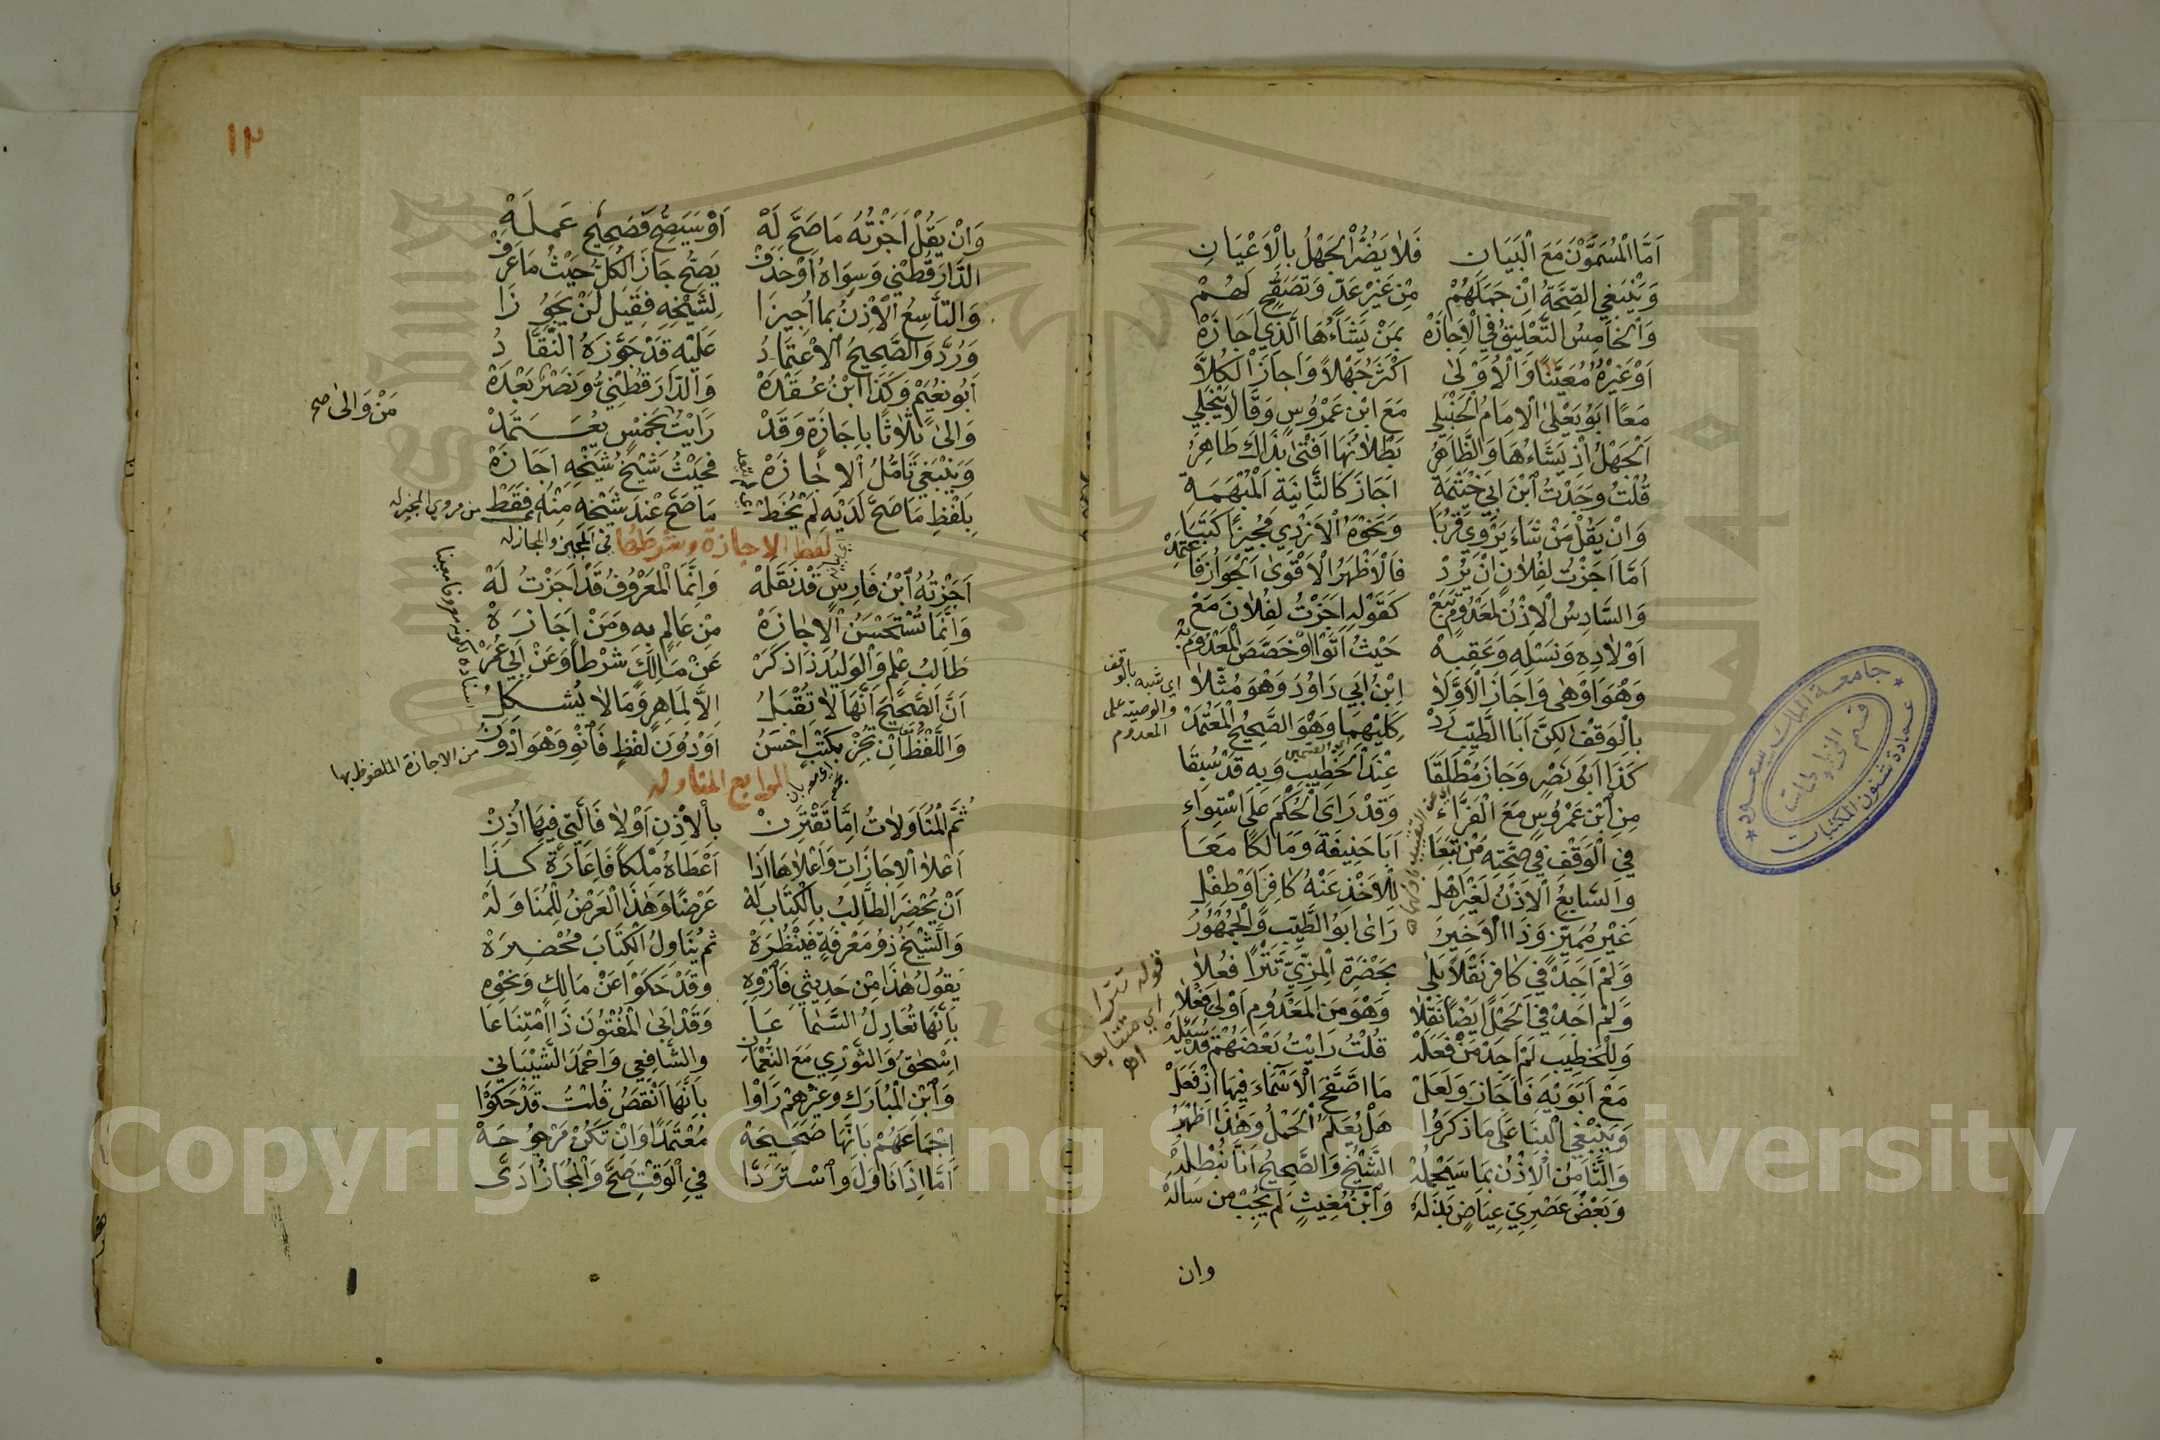 أَمَّا الْمُسَمَّوْنَ مَعَ الْبَيَانِ فَلَا يَضُرُّ الْجَهْلُ بِالْأَعْيَانِ
وَيَنْبَغِي الصِّحَّةُ إِنْ جَمَلَهُمْ مِنْ غَيْرِ عَدٍّ وَتَصَفُّحٍ لَهُمْ
وَالْخَامِسُ التَّعْلِيقُ فِي الْإِجَازَهْ بِمَنْ يَشَاءُهَا الَّذِي أَجَازَهْ
أَوْ غَيْرُهُ مُعَيَّنًا وَالْأُوْلَى أَكْثَرُ جَهْلًا وَأَجَازَ الْكُلَّا
مَعًا أَبُو يَعْلَى الْإِمَامُ الْحَنْبَلِي مَعَ ابْنِ عَمْرُوسٍ وَقَالَا يَنْجَلِي
الْجَهْلُ إِذْ يَشَاءُهَا وَالظَّاهِرُ بُطْلَانُهَا أَفْتَى بِذَاكَ طَاهِرُ
قُلْتُ وَجَدْتُ ابْنَ أَبِي خَيْثَمَةِ أَجَازَ كَالثَّانِيَةِ الْمُبْهَمَةِ
وَإِنْ يَقُلْ مَنْ شَاءَ يَرْوِي قَرُبَا وَنَحْوَهُ الْأَزْدِي مُجِيزًا كَتَبَا
أَمَّا أَجَزْتُ لِفُلَانٍ إِنْ يُرِدْ فَالْأَظْهَرُ الْأَقْوَى الْجَوَازُ فَاعْتَمِدْ
وَالسَّادِسُ الْإِذْنُ لِمَعْدُومٍ تَبَعْ كَقَوْلِهِ أَجَزْتُ لِفُلَانَ مَعْ
أَوْلَادِهِ وَنَسْلِهِ وَعَقِبِهْ حَيْثُ أَتَوْا أَوْ خَصَّصَ الْمَعْدُومَ بِهْ
وَهْوَ أَوْهَى وَأَجَازَ الْأَوَّلَا ابْنُ أَبِي دَاوُدَ وَهْوَ مُثِّلَا
بِالْوَقْفِ لَكِنَّ أَبَا الطَّيِّبِ رَدْ كِلَيْهِمَا وَهْوَ الصَّحِيحُ الْمُعْتَمَدْ
كَذَا أَبُو نَصْرٍ وَجَازَ مُطْلَقَا عِنْدَ الْخَطِيبِ وَبِهِ قَدْ سُبِقَا
مِنِ ابْنِ عَمْرُوسٍ مَعَ الْفَرَّاءِ وَقَدْ رَأَى الْحُكْمَ عَلَى اسْتِوَاءِ
فِي الْوَقْفِ فِي صِحَّتِهِ مَنْ تَبِعَا أَبَا حَنِيفَةَ وَمَالِكًا مَعَا
وَالسَّابِعُ الْإِذْنُ لِغَيْرِ أَهْلِ لِلْأَخْذِ عَنْهُ كَافِرًا أَوْ طِفْلِ
غَيْرِ مُمَيِّزٍ وَذَا الْأَخِيرُ رَأَى أَبُو الطَّيِّبِ وَالْجُمْهُورُ
وَلَمْ أَجِدْ فِي كَافِرٍ نَقْلًا بَلَى بِحَضْرَةِ الْمِزِّيِّ تَتْرًا فُعِلَا
وَلَمْ أَجِدْ فِي الْحَمْلِ أَيْضًا نَقْلَا وَهْوَ مِنَ الْمَعْدُومِ أَوْلَى فِعْلَا
وَلِلْخَطِيبِ لَمْ أَجِدْ مَنْ فَعَلَهْ قُلْتُ رَأَيْتُ بَعْضَهُمْ قَدْ سُئِلَهْ
مَعْ أَبَوَيْهِ فَأَجَازَ وَلَعَلْ مَا اصَّفَّحَ الْأَسْمَاءَ فِيهَا إِذْ فَعَلْ
وَيَنْبَغِي الْبِنَا عَلَى مَا ذَكَرُوا هَلْ يُعْلَمُ الْحَمْلُ وَهَذَا أَظْهَرُ
وَالثَّامِنُ الْإِذْنُ بِمَا سَيَحْمِلُهْ الشَّيْخُ وَالصَّحِيحُ أَنَّا نُبْطِلُهْ
وَبَعْضُ عَصْرِيِّ عِيَاضٍ بَذَلَهْ وَابْنُ مُغِيثٍ لَمْ يُجِبْ مَنْ سَأَلَهْ
وان
اي شبه بالوقف
والوصية على
المعدوم
قوله تترا
اي متتابعا
اه
جامعة الملك سعود
قسم المخطوطات
عمادة شئون المكتبات
١٢
وَإِنْ يَقُلْ أَجَزْتُهُ مَا صَحَّ لَهْ أَوْ سَيَصِحُّ فَصَحِيحٌ عَمِلَهْ
الدَّارَقُطْنِي وَسِوَاهُ أَوْ حَذَفْ يَصِحُّ جَازَ الْكُلُّ حَيْثُ مَا عَرَفْ
وَالتَّاسِعُ الْإِذْنُ بِمَا أُجِيزَا لِشَيْخِهِ فَقِيلَ لَنْ يَجُوزَا
وَرُدَّ وَالصَّحِيحُ الِاعْتِمَادُ عَلَيْهِ قَدْ جَوَّزَهُ النُّقَّادُ
أَبُو نُعَيْمٍ وَكَذَا ابْنُ عُقْدَهْ وَالدَّارَقُطْنِيُّ وَنَصْرٌ بَعْدَهْ
وَالَى ثَلَاثًا بِإِجَازَةٍ وَقَدْ رَأَيْتُ بِخَمْسٍ يُعْتَمَدْ
مَنْ وَالى صح
وَيَنْبَغِي تَأَمُّلُ الْإِجَازَهْ فَحَيْثُ شَيْخُ شَيْخِهِ أَجَازَهْ
بِلَفْظِ مَا صَحَّ لَدَيْهِ لَمْ يُخَطْ مَا صَحَّ عِنْدَ شَيْخِهِ مِنْهُ فَقَطْ
لفظ الاجازة وشرطها في المجيز والمجاز له
أَجَزْتُهُ ابْنُ فَارِسٍ قَدْ نَقَلَهْ وَإِنَّمَا الْمَعْرُوفُ قَدْ أَجَزْتُ لَهْ
وَإِنَّمَا تُسْتَحْسَنُ الْإِجَازَهْ مِنْ عَالِمٍ بِهِ وَمَنْ أَجَازَهْ
طَالِبُ عِلْمٍ وَالْوَلِيدُ ذَا ذَكَرْ عَنْ مَالِكَ شَرْطًا وَعَنْ أَبِي عُمَرْ
أَنَّ الصَّحِيحَ أَنَّهَا لَا تُقْبَلُ إِلَّا لِمَاهِرٍ وَمَا لَا يُشْكِلُ
وَاللَّفْظُ إِنْ تُجِزْ بِكَتْبٍ أَحْسَنُ أَوْ دُونَ لَفْظٍ فَانْوِ وَهْوَ أَدْوَنُ
من الاجازة الملفوظ بها
الرابع المناولة
ثُمَّ الْمُنَاوَلَاتُ إِمَّا تَقْتَرِنْ بِالْإِذْنِ أَوْ لَا فَالَّتِي فِيهَا أُذِنْ
أَعْلَا الْإِجَازَاتِ وَأَعْلَاهَا إِذَا أَعْطَاهُ مِلْكًا فَإِعَارَةً كَذَا
أَنْ يُحْضِرَ الطَّالِبُ بِالْكِتَابِ لَهْ عَرْضًا وَهَذَا الْعَرْضُ لِلْمُنَاوَلَهْ
وَالشَّيْخُ ذُو مَعْرِفَةٍ فَيَنْظُرَهْ ثُمَّ يُنَاوِلُ الْكِتَابَ مُحْضِرَهْ
يَقُولُ هَذَا مِنْ حَدِيثِي فَارْوِهِ وَقَدْ حَكَوْا عَنْ مَالِكٍ وَنَحْوِهِ
بِأَنَّهَا تُعَادِلُ السَّمَاعَا وَقَدْ أَبَى الْمُفْتُونَ ذَا امْتِنَاعَا
إِسْحَقُ وَالثَّوْرِي مَعَ النُّعْمَانِ وَالشَّافِعِي وَأَحْمَدَ الشَّيْبَانِي
وَابْنِ الْمُبَارَكِ وَغَيْرِهِمْ رَأَوْا بِأَنَّهَا أَنْقَصُ قُلْتُ قَدْ حَكَوْا
إِجْمَاعَهُمْ بِأَنَّهَا صَحِيحَهْ مُعْتَمَدًا وَإِنْ تَكُنْ مَرْجُوحَهْ
أَمَّا إِذَا نَاوَلَ وَاسْتَرَدَّا فِي الْوَقْتِ صَحَّ وَالْمُجَازُ أَدَّى